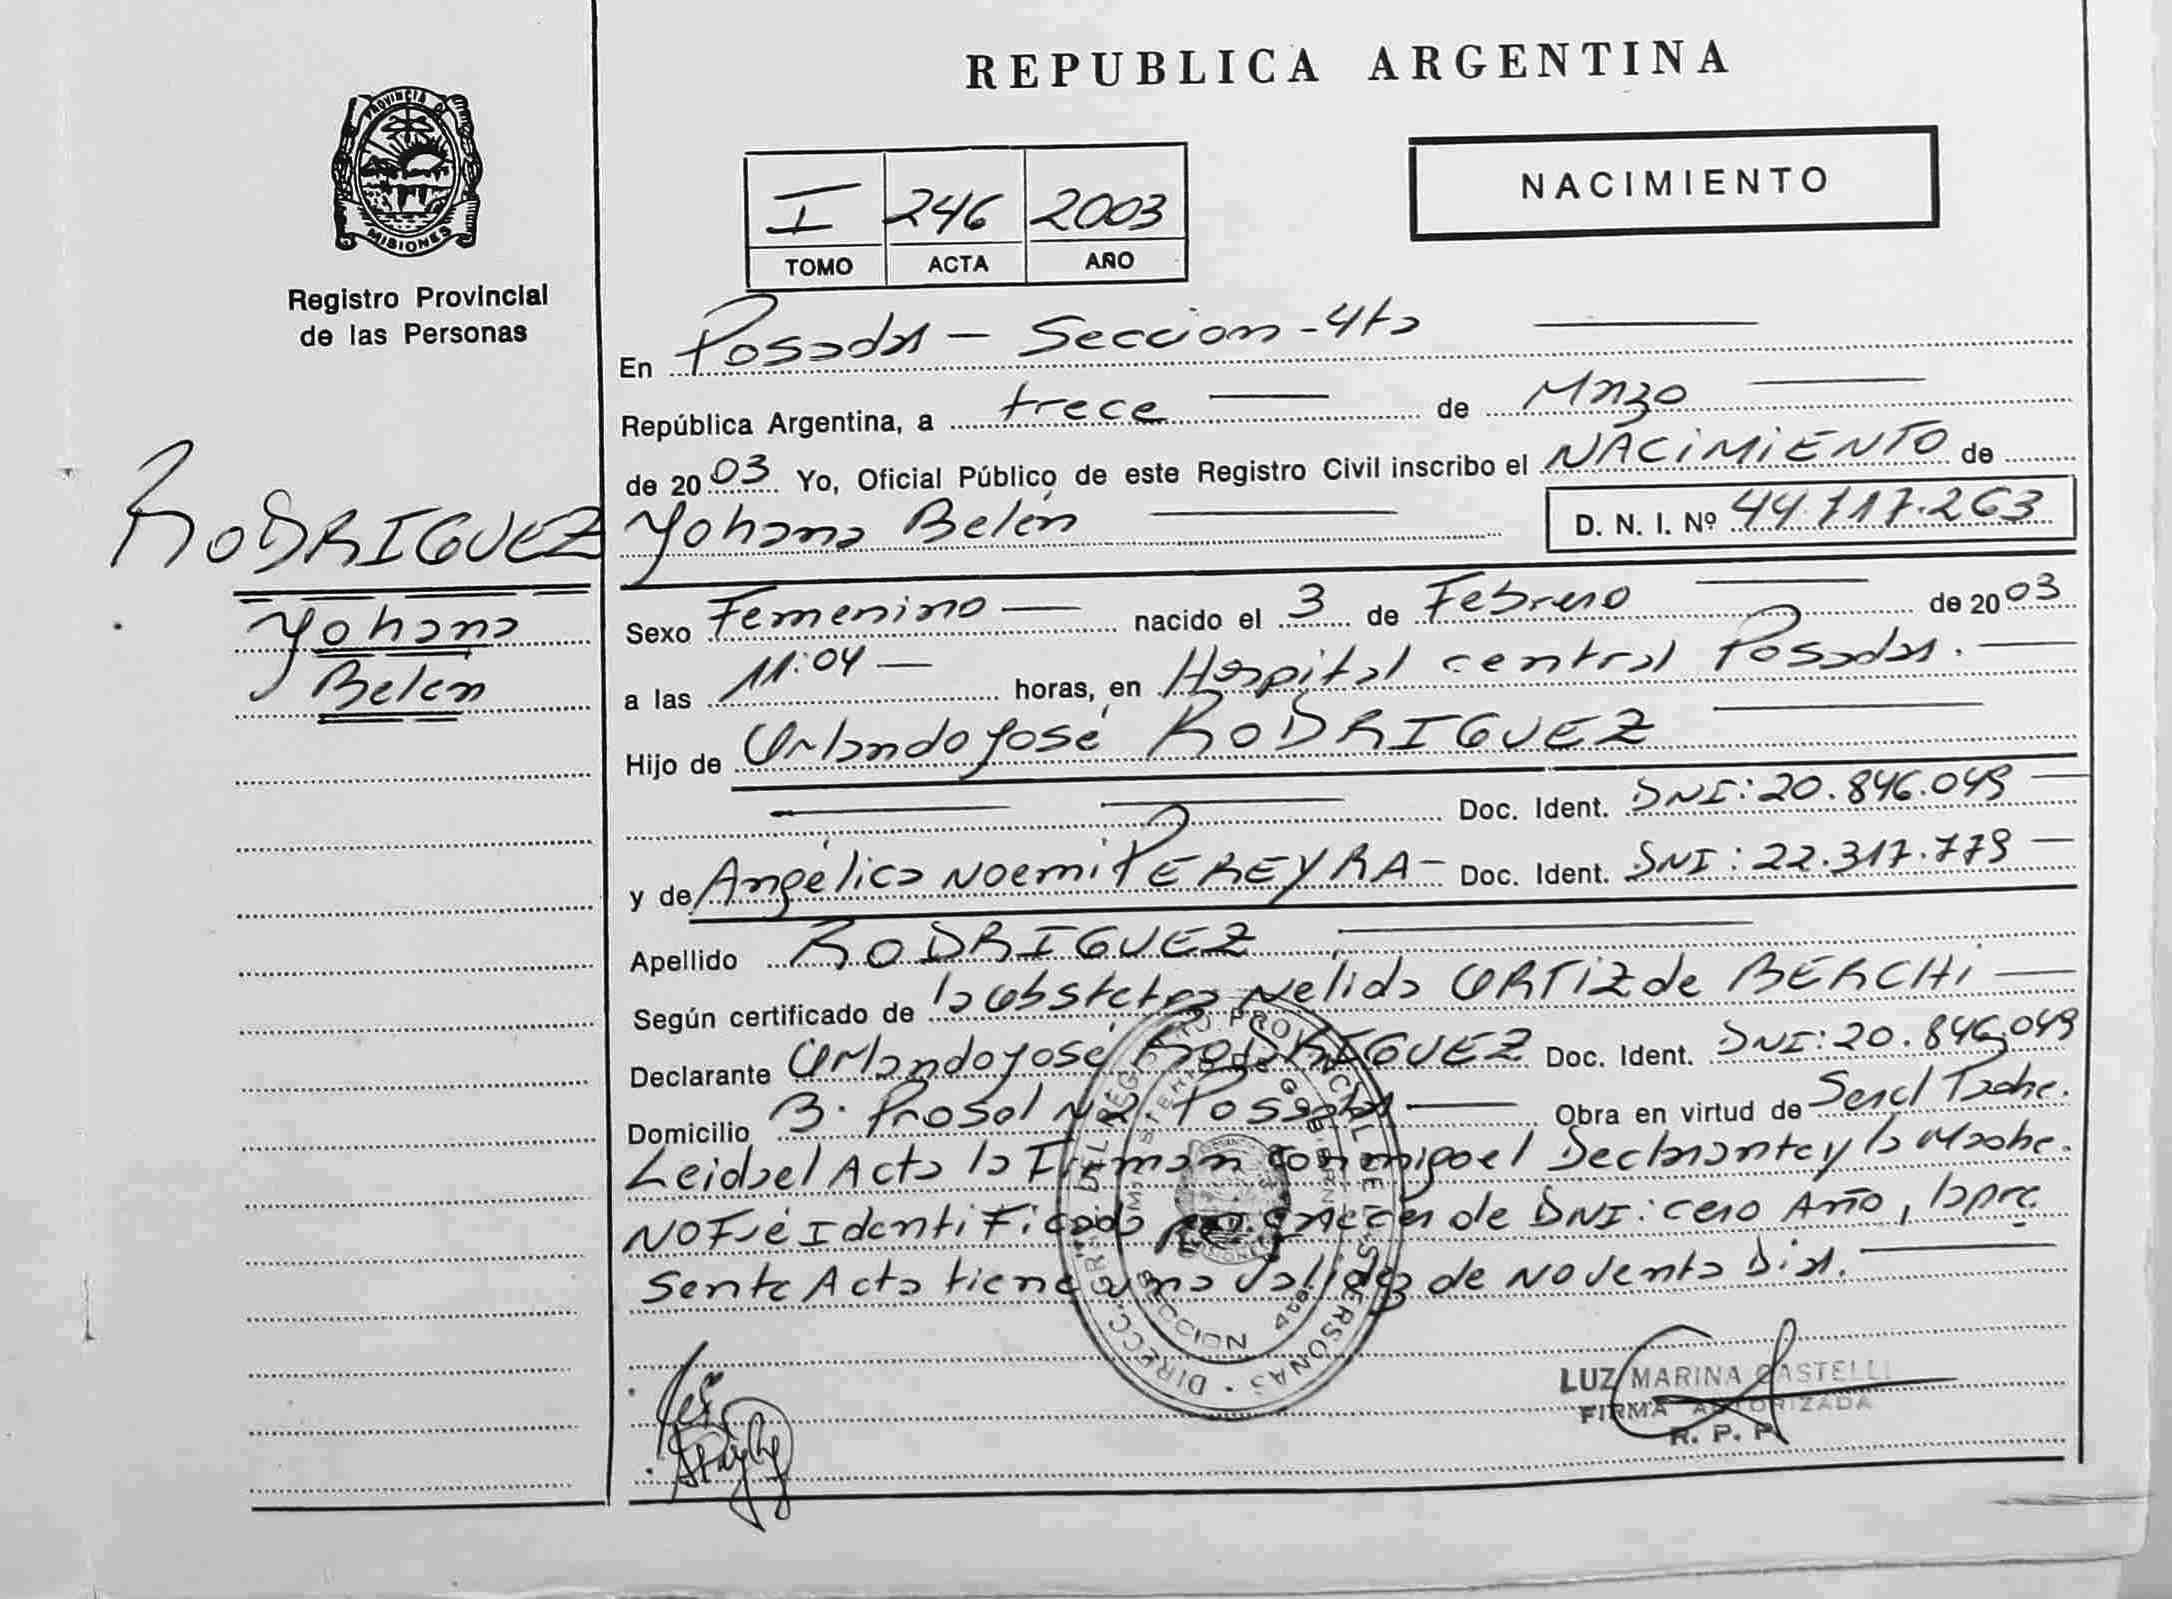 REPUBLICA ARGENTINA
PROVINCIA DE MISIONES
Registro Provincial
de las Personas
NACIMIENTO
I 246 2003
TOMO ACTA AÑO
En Posadas - Seccion - 4ta
República Argentina, a trece de Marzo
de 2003 Yo, Oficial Público de este Registro Civil inscribo el NACIMIENTO de
RODRIGUEZ
Yohana
Belén
Yohana Belén D. N. I. Nº 44.717.263
Sexo Femenino nacido el 3 de Febrero de 2003
a las 11:04 horas, en Hospital central Posadas.
Hijo de Orlando José RODRIGUEZ
Doc. Ident. DNI: 20.846.049
y de Angélica Noemi PEREYRA - Doc. Ident. DNI: 22.317.779
Apellido RODRIGUEZ
Según certificado de la obstetra Nelida ORTIZ de BERCHI
Declarante Orlando José RODRIGUEZ Doc. Ident. DNI: 20.846.049
Domicilio B. Prosol Nº2 Posadas Obra en virtud de Ser el Padre.
Leida el Acta la Firman conmigo el Declarante y la Madre.
NO Fué Identificada por carecer de DNI: cero Año, la pre
sente Acta tiene una validez de noventa Dias.
DIRECC. GRAL. DEL REGISTRO PROVINCIAL DE LAS PERSONAS
MINISTERIO DE GOBIERNO
SECCION
LUZ MARINA CASTELLI
FIRMA AUTORIZADA
R. P. P.